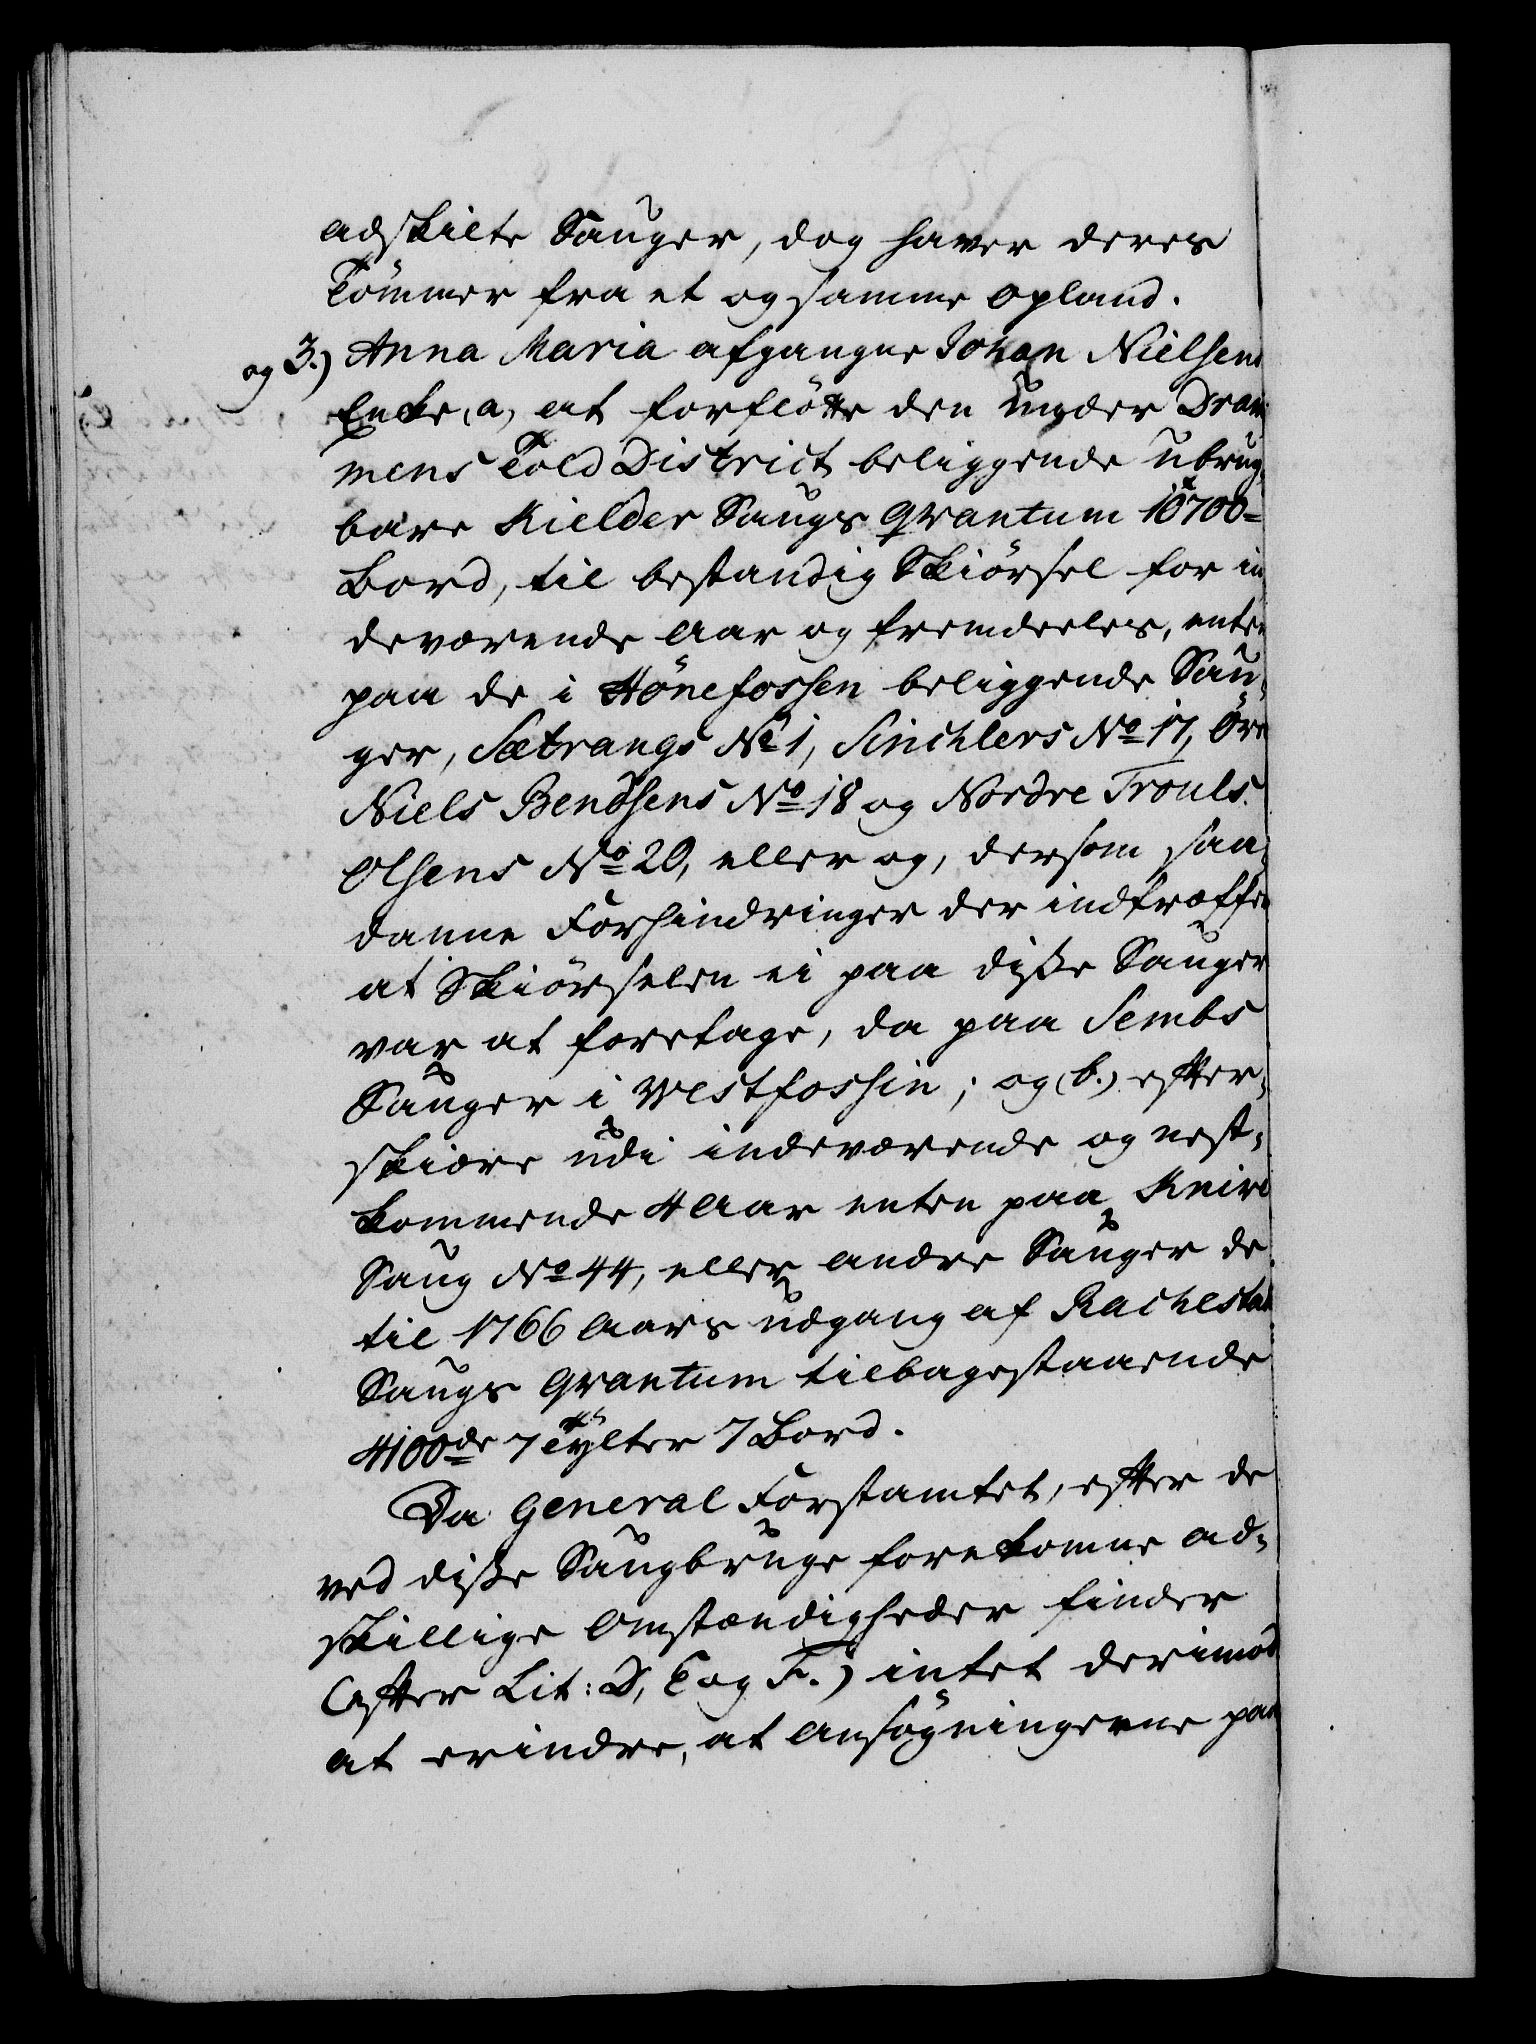 adskilte Sauger, dog haver deres
Tömmer fra et og samme Opland.
og 3.) Anna Maria afgangne Johan Nielsens
Enke, a, at forflötte den under Dram¬
mens Told District beliggende ubrug¬
bare Kielder Saugs Qvantum 10700=
Bord, til bestandig Skiörsel for in¬
deværende Aar og fremdeeles, enten
paa de i Hönefossen beliggende Sau¬
ger, Sætrangs No 1, Sinchlers No 17, Övre
Niels Bendsens No 18 og Nordre Trouls
Olsens No 20, eller og, dersom saa¬
danne Forhindringer der indtræffer
at Skiörselen ei paa disse Sauger
var at foretage, da paa Sembs
Sauger i Vestfossen; og (b.) efter¬
skiære udi indeværende og nest¬
kommende 4 Aar enten paa Knive
Saug No 44, eller andre Sauger de
til 1766 Aars udgang af Rachestad
Saugs Qvantum tilbagestaaende
4100de 7 Tylter 7 Bord.
Da General Forstamtet, efter de
ved disse Saugbruge forekomne ad¬
skillige Omstændigheder finder
(efter Lit: D, E og F.) intet derimod
at erindre, at Ansögningerne paa